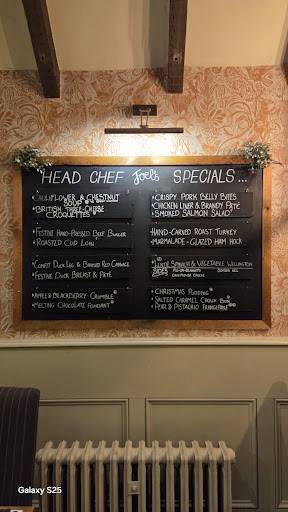 HEAD CHEF Joel's SPECIALS...
• CAULIFLOWER & CHESTNUT
SOUP
• BRITISH THREE-CHEESE
CROQUETTES
• FESTIVE HAND-PRESSED BEEF BURGER
• ROASTED COD LOIN
• CONFIT DUCK LEG & BRAISED RED CABBAGE
• FESTIVE DUCK BREAST & PÂTÉ
• APPLE & BLACKBERRY CRUMBLE
• MELTING CHOCOLATE FONDANT
• CRISPY PORK BELLY BITES
• CHICKEN LIVER & BRANDY PÂTÉ
• SMOKED SALMON SALAD
HAND-CARVED ROAST TURKEY
• MARMALADE-GLAZED HAM HOCK
SPINACH & VEGETABLE WELLINGTON
SIDES PIGS-IN-BLANKETS
CAULIFLOWER CHEESE
• CHRISTMAS PUDDING
• SALTED CARAMEL CHOUX BUN
• PEAR & PISTACHIO FRANGIPANE
Galaxy S25